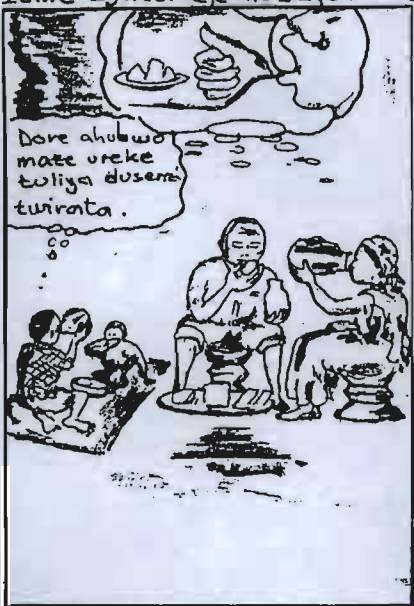 Dore ahubwo
mate ureke
tuliya dusemi
twirata.